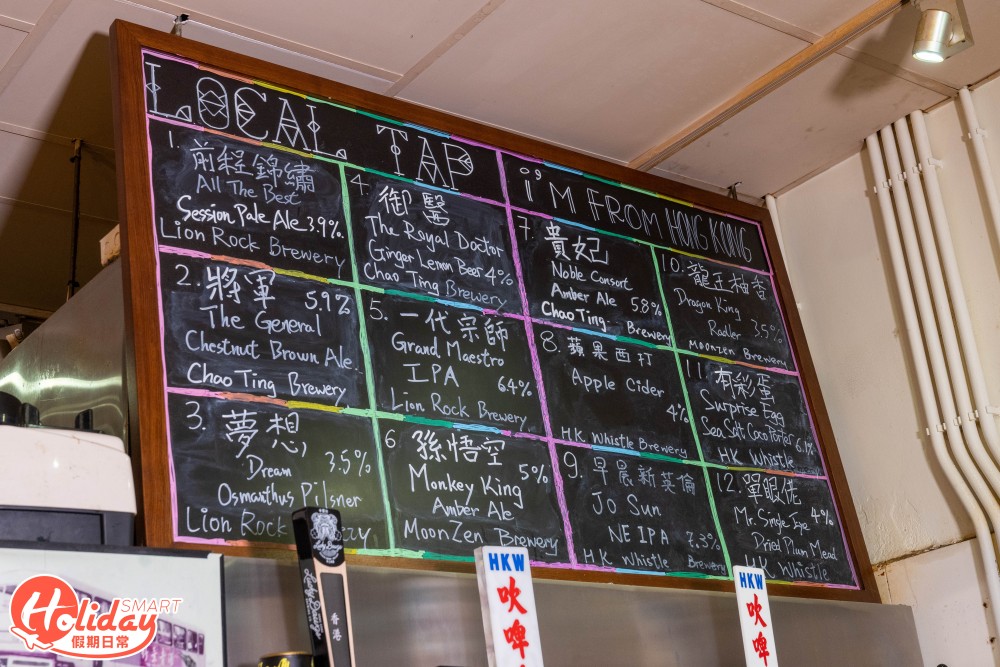 LOCAL TAP
I'M FROM HONG KONG
1. 前程錦繡
All The Best
Session Pale Ale 3.9%
Lion Rock Brewery
2. 將軍 5.9%
The General
Chestnut Brown Ale
Chao Ting Brewery
3. 夢想
Dream 3.5%
Osmanthus Pilsner
Lion Rock
4. 御醫
The Royal Doctor
Ginger Lemon Beer 4%
Chao Ting Brewery
5. 一代宗師
Grand Maestro
IPA 6.4%
Lion Rock Brewery
6 孫悟空
Monkey King 5%
Amber Ale
MoonZen Brewery
7. 貴妃
Noble Consort
Amber Ale 5.8%
Chao Ting Brewery
8. 蘋果西打
Apple Cider
4%
HK Whistle Brewery
9. 早晨新英倫
Jo Sun
NE IPA 7.3%
HK Whistle Brewery
10. 龍王柚香
Dragon King
Radler 3.5%
Moonzen Brewery
11 有彩蛋
Surprise Egg
Sea Salt Cao Porter 6.1%
HK Whistle
12. 單眼佬
Mr. Single Eye 4%
Dried Plum Mead
HK Whistle
HKW
吹啤
HKW
吹啤
香港
Holiday SMART
假期日常